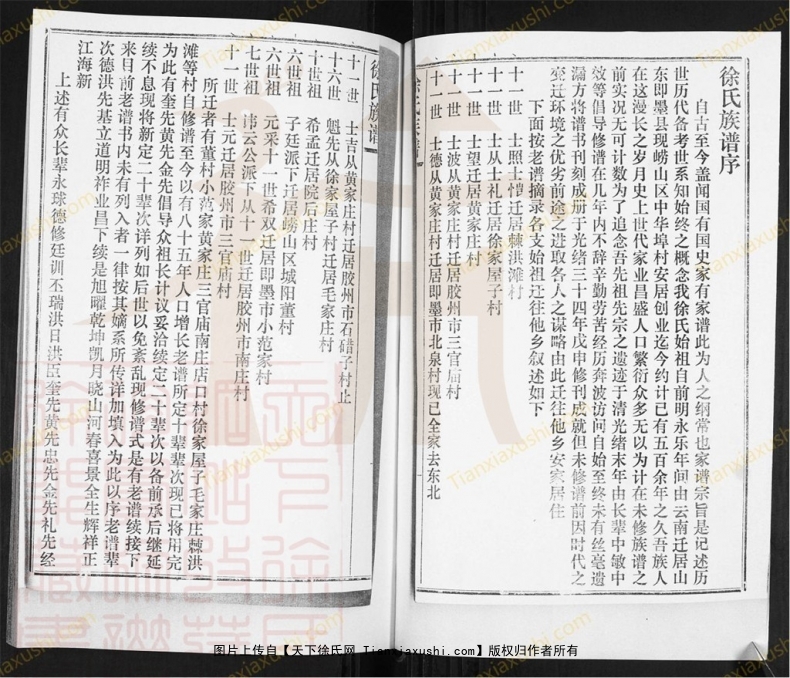 徐氏族谱序
自古至今盖闻国有国史家有家谱此为人之纲常也家谱宗旨是记述历
世历代备考世系知始终之概念我徐氏始祖自前明永乐年间由云南迁居山
东即墨县现崂山区中华埠村安居创业迄今约计已有五百余年之久吾族人
在这漫长之岁月史上世代家业昌盛人口繁衍众多无以为计在未修族谱之
前实况无可计数为了追念吾先祖先宗之遗迹于清光绪末年由长辈中敏中
效等倡导修谱在几年内不辞辛勤劳苦经历奔波访问自始至终未有丝毫遗
漏方将谱书刊刻成册于光绪三十四年戊申修刊成就但未修谱前因时代之
变迁环境之优劣前途之进取各人之谋略由此迁往他乡安家居住
下面按老谱摘录各支始祖迁往他乡叙述如下
十一世 士照士恺迁居棘洪滩村
十一世 士从士礼迁居徐家屋子村
十一世 士望迁居黄家庄村
十一世 士波从黄家庄村迁居胶州市三官庙村
十一世 士德从黄家庄村迁居即墨市北泉村现已全家去东北
徐氏族谱
十一世 士吉从黄家庄村迁居胶州市石碏子村止
十六世 魁先从徐家屋子村迁居毛家庄村
十世祖 希孟迁居院后庄村
六世祖 子廷派下迁居崂山区城阳董村
六世祖 元采十一世希双迁居即墨市小范家村
七世祖 讳云公派下从十一世迁居胶州市南庄村
十一世 士元迁居胶州市三官庙村
所迁者有董村小范家黄家庄三官庙南庄店口村徐家屋子毛家庄棘洪
滩等村自修谱至今以有八十五年人口增长老谱所定十辈辈次现已将用完
为此有奎先黄先金先倡导众祖长计议妥洽续定二十辈次以备前承后继延
续不息现将新定二十辈次详列如后世以免紊乱现修谱式是有老谱续接下
来目前老谱书内未有列入者一律按其嫡系所传详加填入为此以序老谱辈
次德洪先基立道明祥业昌下续是旭曜乾坤凯月晓山河春喜景全生辉祥正
江海新
上述有众长辈永球德修廷训丕瑞洪日洪臣奎先黄先忠先金先礼先经
图片上传自【天下徐氏网 Tianxiaxushi.com】版权归作者所有